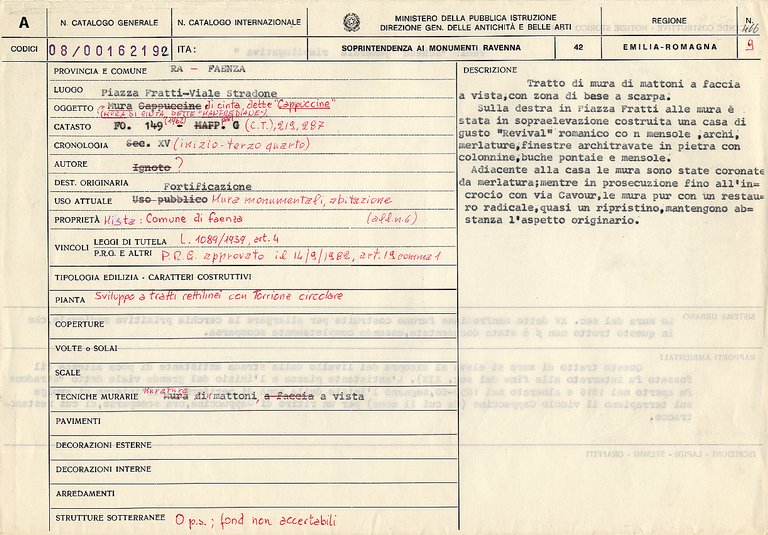 A
N. CATALOGO GENERALE
N. CATALOGO INTERNAZIONALE
MINISTERO DELLA PUBBLICA ISTRUZIONE
DIREZIONE GEN. DELLE ANTICHITÀ E BELLE ARTI
REGIONE
N.
466
CODICI
08/00162192
ITA:
SOPRINTENDENZA AI MONUMENTI RAVENNA
42
EMILIA-ROMAGNA
9
PROVINCIA E COMUNE RA - FAENZA
LUOGO Piazza Fratti-Viale Stradone
OGGETTO Mura Cappuccine di cinta, dette "Cappuccine"
(MURA DI CINTA, DETTE "MANFREDIANE")
CATASTO FO. 149 (1962) - MAPP. G (C.T.), 219, 287
CRONOLOGIA Sec. XV (inizio-terzo quarto)
AUTORE Ignoto ?
DEST. ORIGINARIA Fortificazione
USO ATTUALE Uso pubblico Mura monumentali, abitazione
PROPRIETÀ Mista: Comune di Faenza (all.n.6)
VINCOLI
LEGGI DI TUTELA L. 1089/1939, art. 4
P.R.G. E ALTRI P.R.G. approvato il 14/9/1982, art. 19 comma 1
TIPOLOGIA EDILIZIA - CARATTERI COSTRUTTIVI
PIANTA Sviluppo a tratti rettilinei con torrione circolare
COPERTURE
VOLTE o SOLAI
SCALE
TECNICHE MURARIE Muratura mura di mattoni, a faccia a vista
PAVIMENTI
DECORAZIONI ESTERNE
DECORAZIONI INTERNE
ARREDAMENTI
STRUTTURE SOTTERRANEE O p.s.; fond non accertabili
DESCRIZIONE
Tratto di mura di mattoni a faccia
a vista,con zona di base a scarpa.
Sulla destra in Piazza Fratti alle mura è
stata in sopraelevazione costruita una casa di
gusto "Revival" romanico co n mensole ,archi,
merlature,finestre architravate in pietra con
colonnine,buche pontaie e mensole.
Adiacente alla casa le mura sono state coronate
da merlatura;mentre in prosecuzione fino all'in=
crocio con via Cavour,le mura pur con un restau=
ro radicale,quasi un ripristino,mantengono ab=
stanza l'aspetto originario.